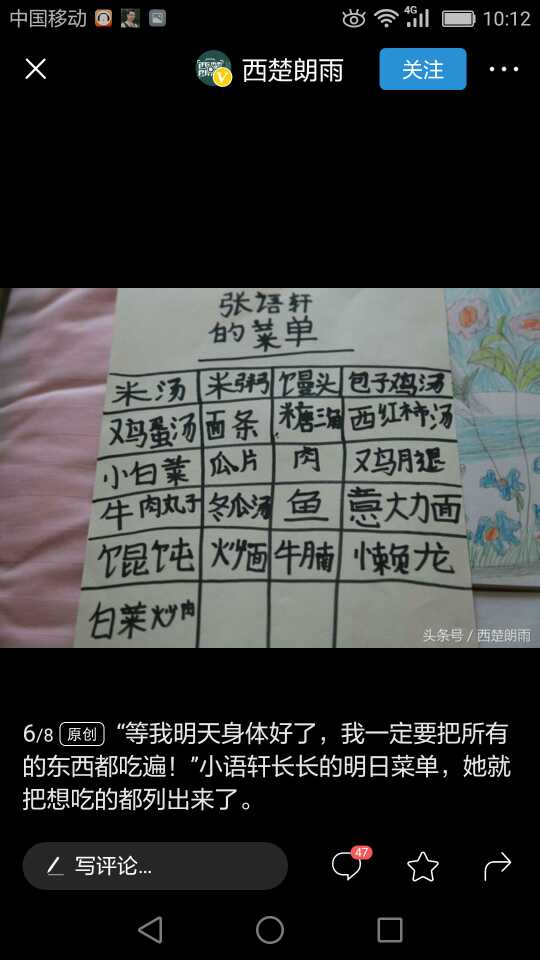 中国移动 4G 10:12
西楚朗雨 关注
张语轩
的菜单
米汤 米粥 馒头 包子鸡汤
鸡蛋汤 面条 糖三角 西红柿汤
小白菜 瓜片 肉 鸡腿
牛肉丸子 冬瓜汤 鱼 意大力面
馄饨 炒面 牛腩 懒龙
白菜炒肉
头条号 / 西楚朗雨
6/8 原创 “等我明天身体好了，我一定要把所有
的东西都吃遍！”小语轩长长的明日菜单，她就
把想吃的都列出来了。
写评论... 47